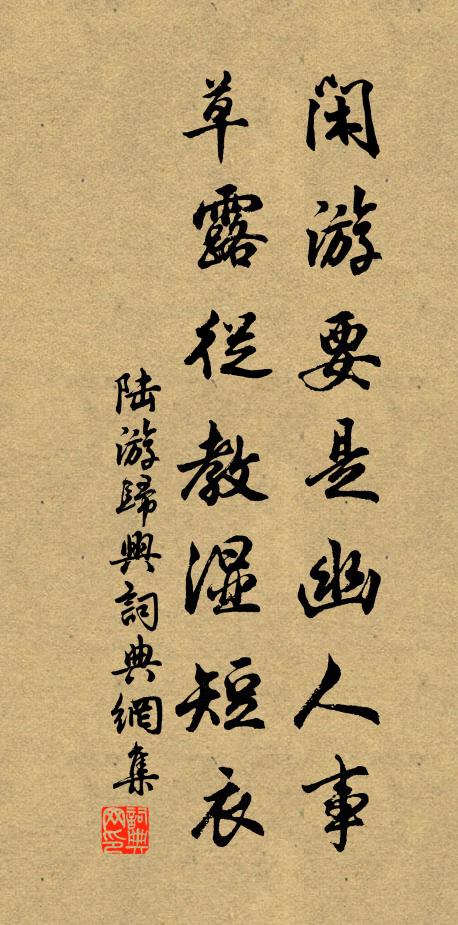 閑游要是幽人事
草露從教濕短衣
陆游歸興詞典網集
詞典
网印